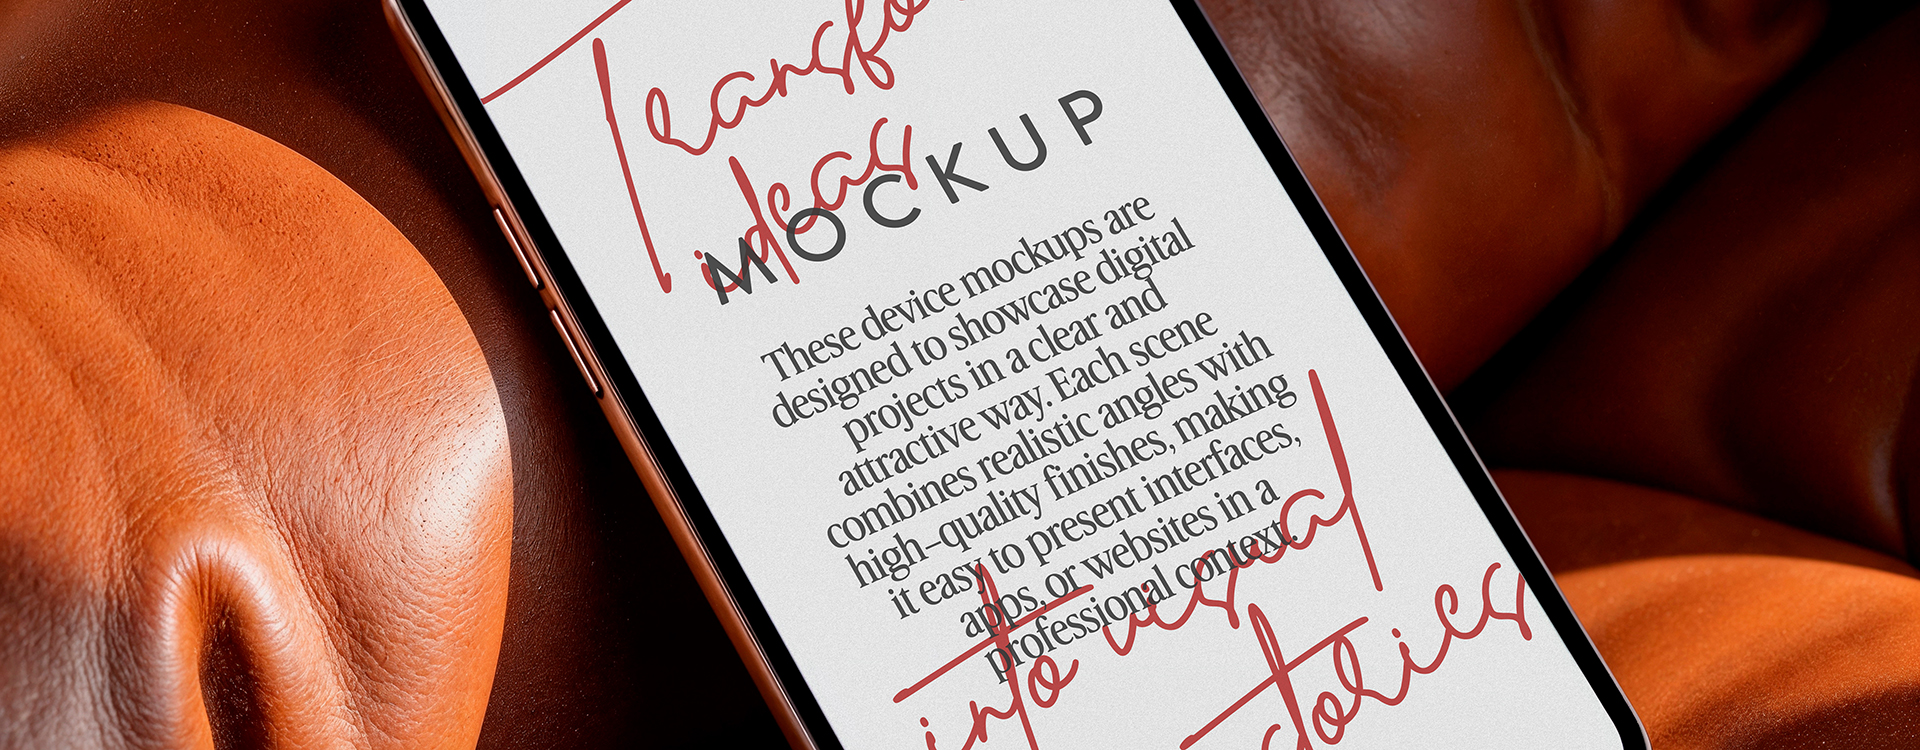 Transfo
ideas
MOCKUP
These device mockups are
designed to showcase digital
projects in a clear and
attractive way. Each scene
combines realistic angles with
high-quality finishes, making
it easy to present interfaces,
apps, or websites in a
professional context.
into visual
stories